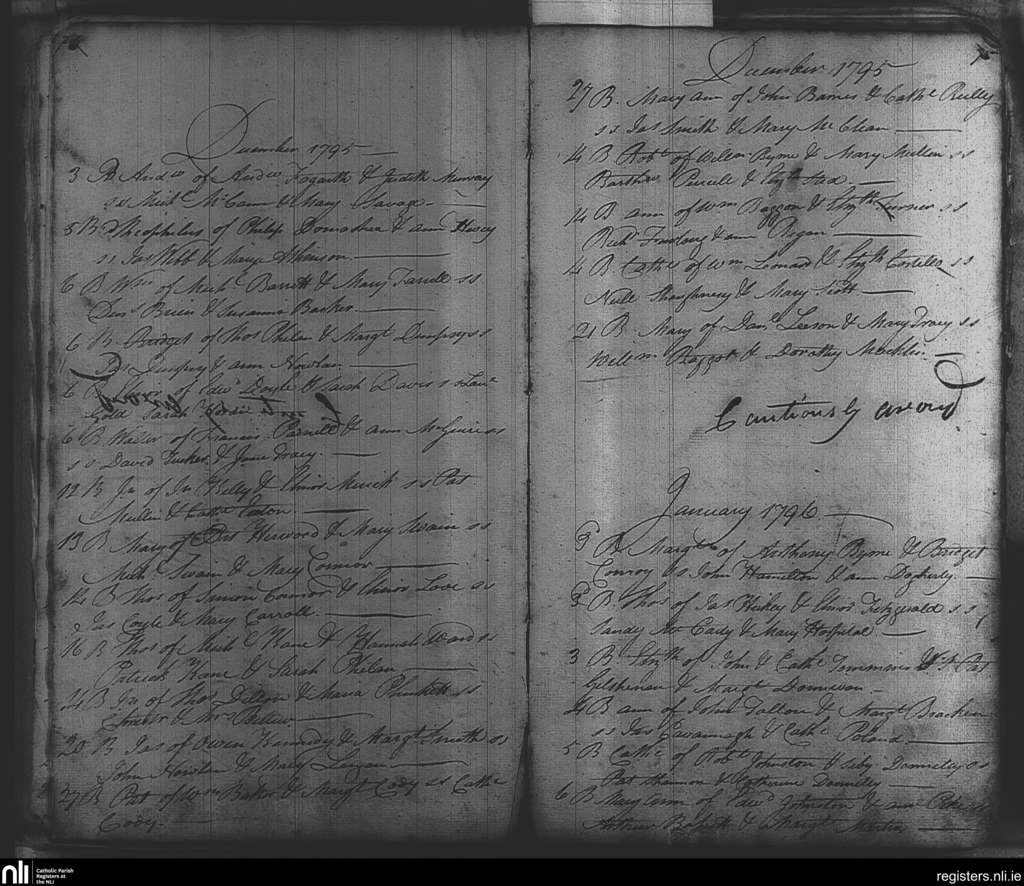 December 1795
3 B Andw of Andw Fogarth & Judith Murray
ss Michl McCann & Mary Savage
5 B Theophilus of Philip Donoshea & ann Husey
ss Jas Webb & Mary Atkinson
6 B Wm of Michl Barrott & Mary Farrell ss
Denis Brien & Susanna Barker
6 B Bridget of Thos Phelan & Margt Dumphy ss
Dumphy & ann Nowlan
6 B of Edwd Doyle & Sarah Davis ss
Gold Sarah
6 B Walter of Francis Parnell & ann McGuire ss
ss David Tucker & Jane Tracy
12 B Jn of Jn Kelly & Elinor ss Pat
Mullin & Cathe
13 B Mary of Herwood & Mary Swain ss
Michl Swain & Mary Connor
14 B Thos of Simon Connor & Elinor Love ss
Jas Coyle & Mary Carroll
16 B Thos of Michl Kane & Hannah Ward ss
Patrick Kane & Sarah Phelan
B Jn of Thos Dillon & Maria Plunkett ss
& Mrs Bellew
20 B Jas of Owen Kennedy & Margt Smith ss
John Nowlan & Mary
27 B Pat of Wm Baker & Margt Cody ss Cathe
Cody
December 1795
27 B. Mary ann of John Barnes & Cathe Reilly
ss Jas Smith & Mary McClean
14 B Robt of Willm Byrne & Mary Mullin ss
Barthw Purcell &
14 B ann of Wm & Turner ss
Richd Furlong & ann Regan
14 B. Cathe of Wm Leonard & Costello ss
Neill Shaughnesy & Mary Scott
21 B. Mary of Danl Leeson & Mary Tracy ss
Willm Baggot & Dorothy Macklin
Cautiously avoid
January 1796
3d B Margt of Anthony Byrne & Bridget
Conroy ss John Hamilton & ann Dogherty
3d B. Thos of Jas Hickey & Elinor Fitzgerald ss
Sandy McCady & Mary Hospital
3 B of John & Cathe Timmins Pat
Gilshenan & Margt Donnovan
4 B ann of John Fallon & Margt Bracken
ss Jas Cavannagh & Cathe Poland
5 B Cathe of Robt Johnston & Donnelly ss
Pat Shannon & Catherine Donnelly
6 B Mary Ann of Edwd Johnston & ann
Arthur & Margt Martin
nli
Catholic Parish
Registers at
the NLI
registers.nli.ie